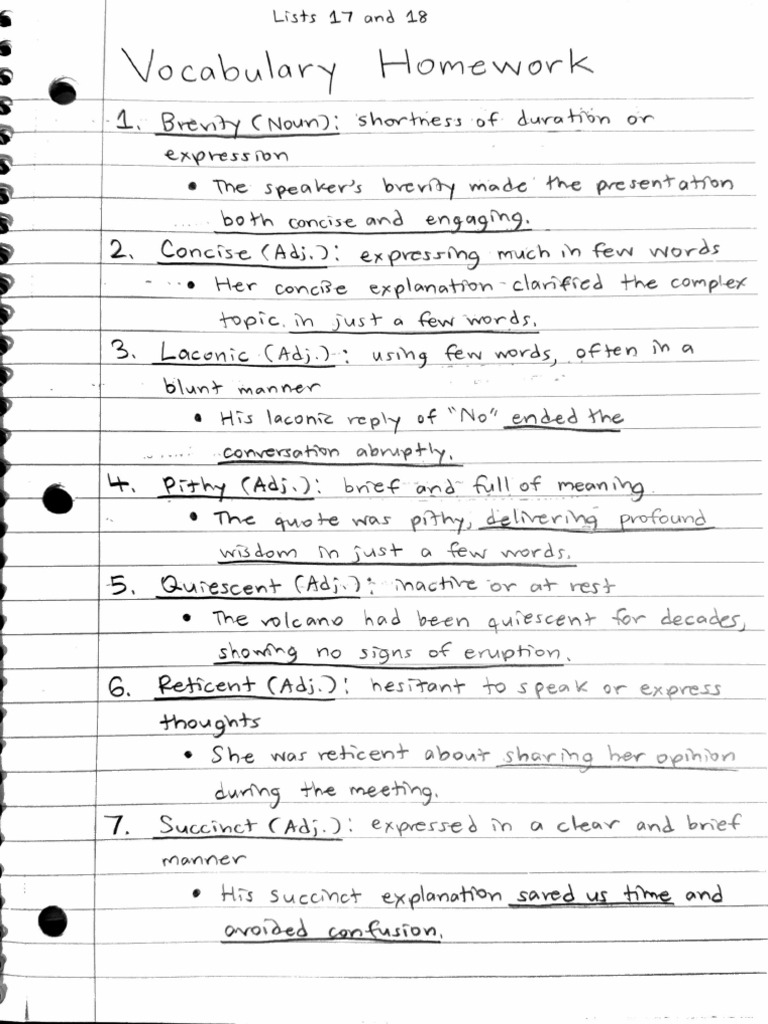 Lists 17 and 18
Vocabulary Homework
1. Brevity (Noun): shortness of duration or
expression
• The speaker's brevity made the presentation
both concise and engaging.
2. Concise (Adj.): expressing much in few words
• Her concise explanation clarified the complex
topic in just a few words.
3. Laconic (Adj.): using few words, often in a
blunt manner
• His laconic reply of "No" ended the
conversation abruptly.
4. Pithy (Adj.): brief and full of meaning
• The quote was pithy, delivering profound
wisdom in just a few words.
5. Quiescent (Adj.): inactive or at rest
• The volcano had been quiescent for decades,
showing no signs of eruption.
6. Reticent (Adj.): hesitant to speak or express
thoughts
• She was reticent about sharing her opinion
during the meeting.
7. Succinct (Adj.): expressed in a clear and brief
manner
• His succinct explanation saved us time and
avoided confusion.